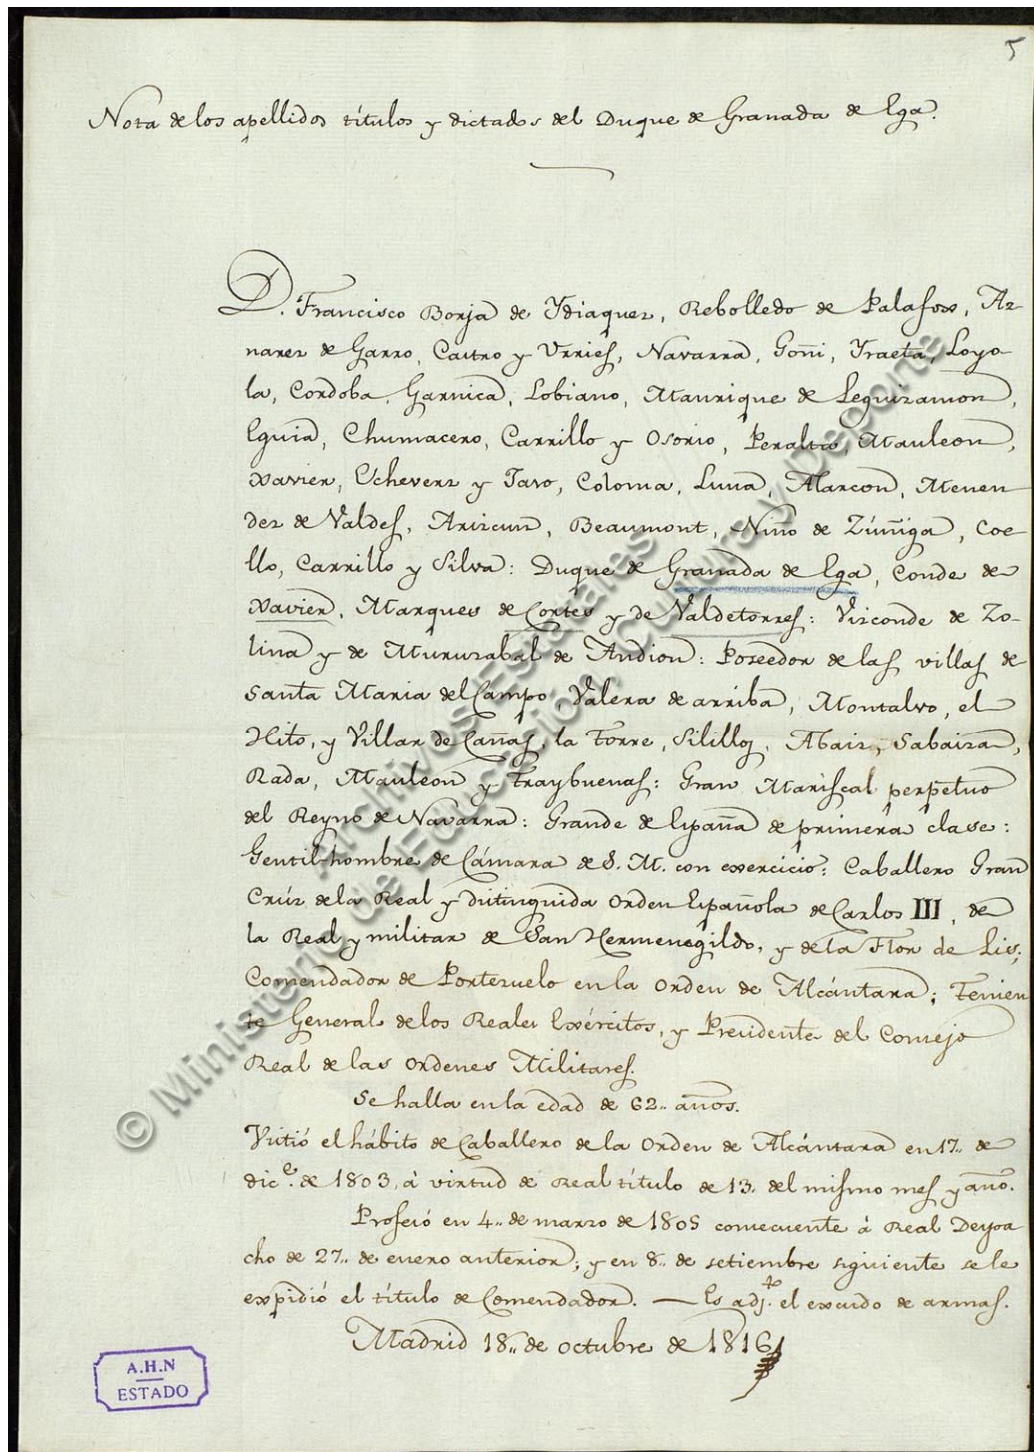 5
Nota de los apellidos títulos y dictados del Duque de Granada de Ega.
D. Francisco Borja de Ydiaquez, Rebolledo de Palafox, Az-
narez de Garro, Castro y Urries, Navarra, Goñi, Yraeta, Loyo-
la, Cordoba, Garnica, Lobiano, Manrique de Leguizamon,
Eguia, Chumacero, Carrillo y Osorio, Peralta, Mauleon,
Xavier, Echeverz y Jaso, Coloma, Luna, Alarcon, Menen-
dez de Valdes, Arizcun, Beaumont, Niño de Zúñiga, Coe-
llo, Carrillo y Silva: Duque de Granada de Ega, Conde de
Xavier, Marques de Cortes y de Valdetorres: Vizconde de Zo-
lina y de Muruzabal de Andion: Poseedor de las villas de
Santa Maria del Campo, Valera de arriba, Montalvo, el
Hito, y Villar de Cañas, la Torre, Sililloz, Abaiz, Sabaiza,
Rada, Mauleon y Traybuenas: Gran Mariscal perpetuo
del Reyno de Navarra: Grande de España de primera clase:
Gentil-hombre de Cámara de S. M. con exercicio: Caballero Gran
Crúz de la Real y distinguida Orden Española de Carlos III, de
la Real y militar de San Hermenegildo, y de la Flor de Lis;
Comendador de Portezuelo en la Orden de Alcántara; Tenien
te General de los Reales Exércitos, y Presidente del Consejo
Real de las Ordenes Militares.
Se halla en la edad de 62.. años.
Vistió el hábito de Caballero de la Orden de Alcántara en 17.. de
dic.e de 1803, á virtud de Real título de 13. del mismo mes y año.
Profesó en 4.. de marzo de 1805 consecuente á Real Despa
cho de 27.. de enero anterior; y en 8.. de setiembre siguiente se le
expidió el título de Comendador. — Es adj.to el escudo de armas.
Madrid 18.. de octubre de 1816
A.H.N
ESTADO
© Ministerio de Educación, Cultura y Deporte
Archivos Estatales